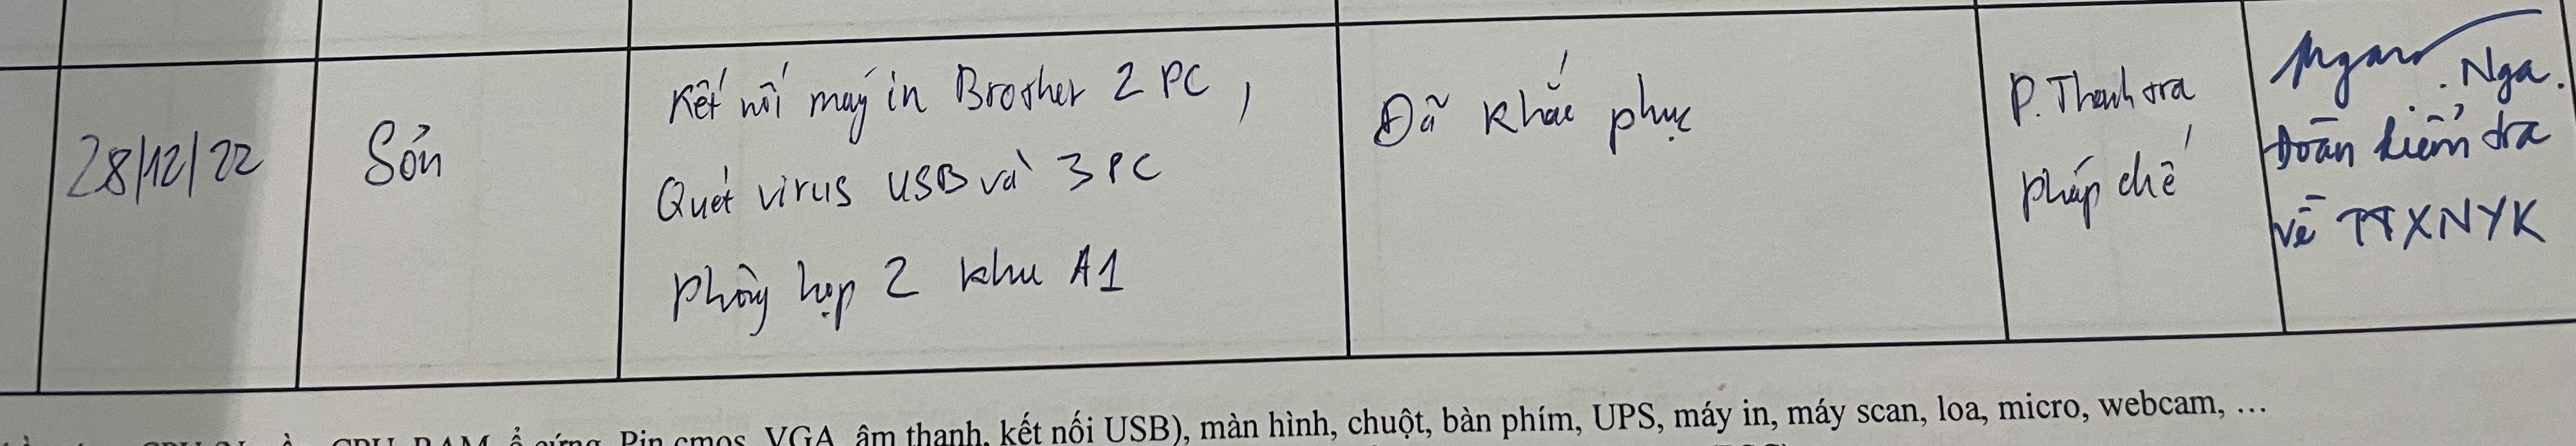 28/12/22
Sơn
Kết nối máy in Brother 2 PC,
Quét virus USB và 3 PC
phòng họp 2 khu A1
Đã khắc phục
P. Thanh tra
pháp chế
Nga.
Đoàn kiểm tra
về TTXNYK
CPU, RAM, ổ cứng, Pin cmos, VGA, âm thanh, kết nối USB), màn hình, chuột, bàn phím, UPS, máy in, máy scan, loa, micro, webcam, …